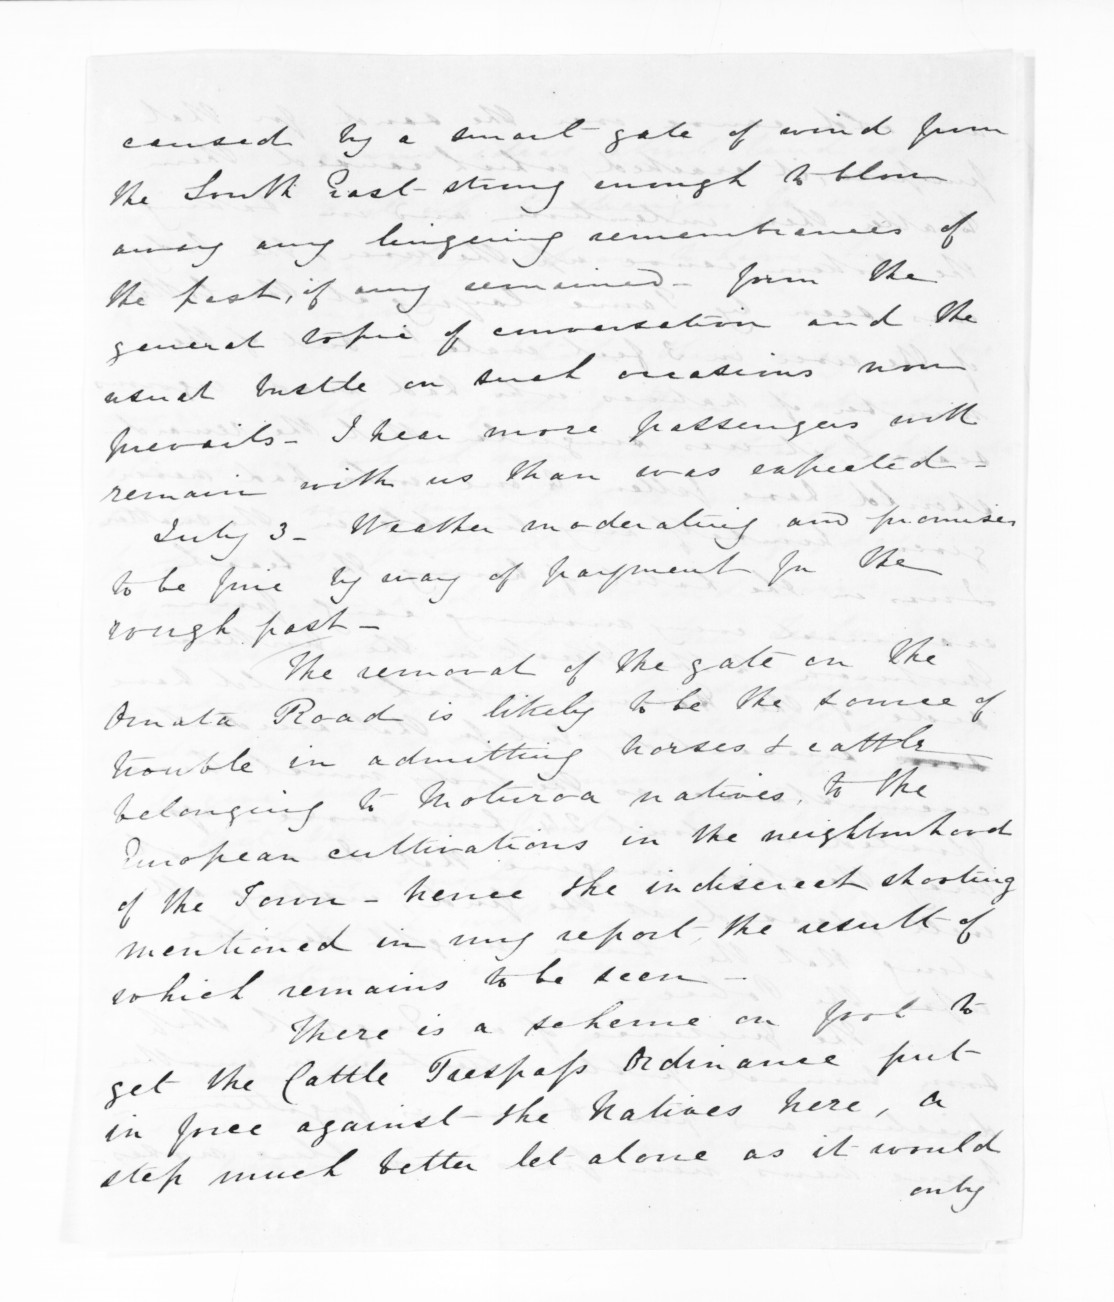 caused by a smart gale of wind from
the South East strong enough to blow
away any lingering remembrances of
the past, if any remained - form the
general topic of conversation and the
usual bustle on such occasions now
prevails - I hear more passengers will
remain with us than was expected -
July 3 - Weather moderating and promises
to be fine by way of payment for the
rough past -
The removal of the gate on the
Omata Road is likely to be the source of
trouble in admitting horses & cattle
belonging to Moturoa natives, to the
European cultivations in the neighborhood
of the Town - hence the indiscreet shooting
mentioned in my report, the result of
which remains to be seen -
There is a scheme on foot to
get the Cattle Trespass Ordinance put
in force against the Natives here, a
step much better let alone as it would
only